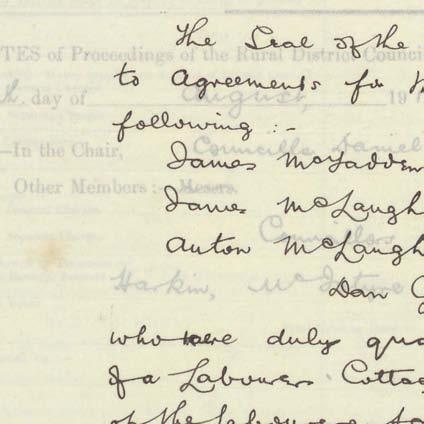 The Seal of the
TES of Proceedings of the Rural District Counci
to Agreements for
th. day of August, 191
following :-
-In the Chair, Councillor Daniel
James McFadden
Other Members :- Messrs.
James McLaugh
Councillors
Anton McLaugh
Harkin, McIntyre
Dan
who were duly qua
of a Labourers Cotta
of the Labourers